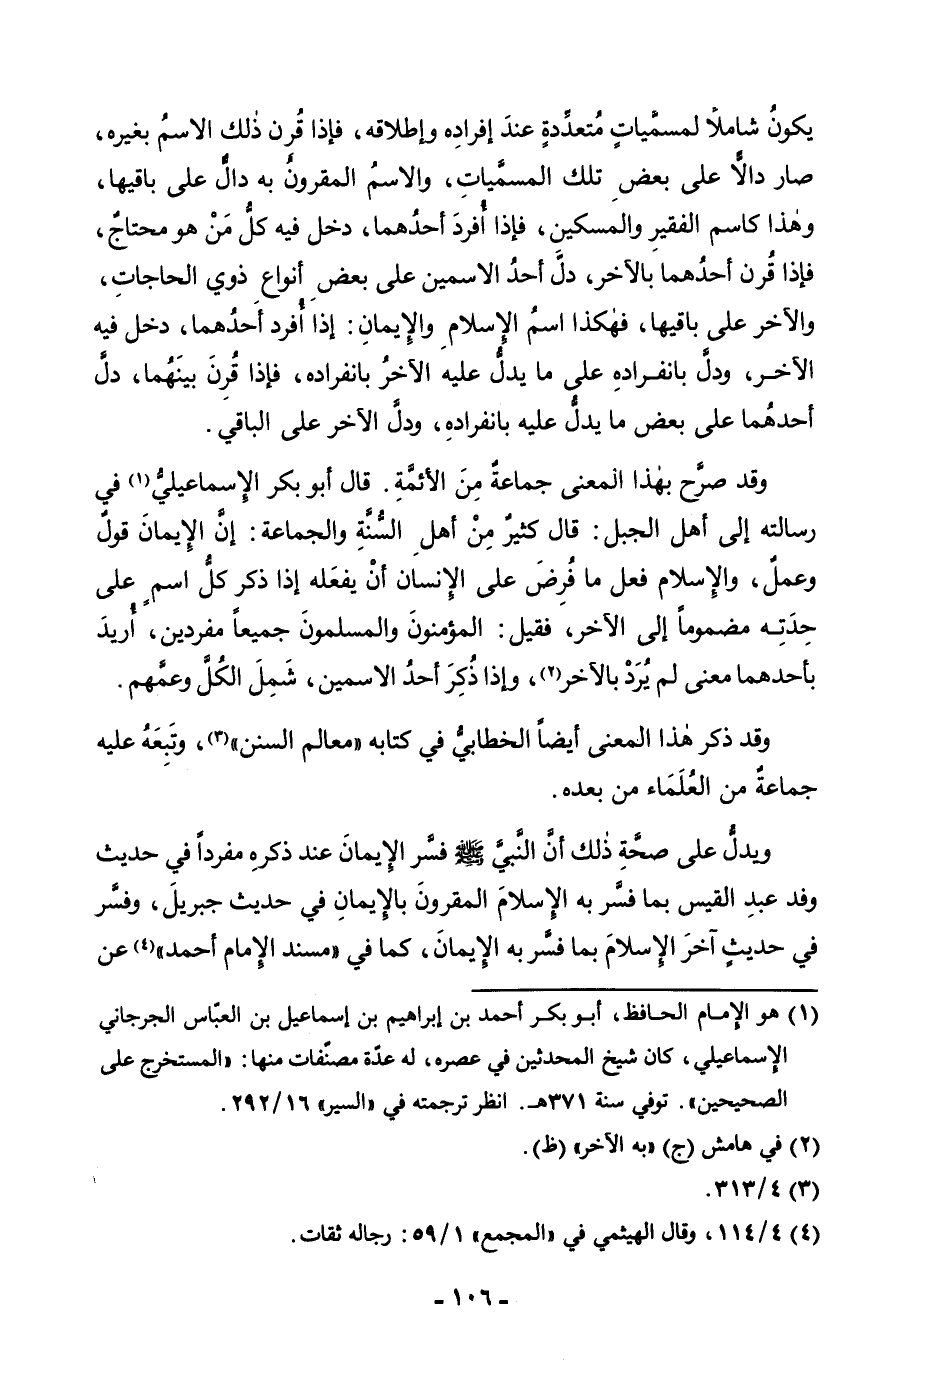 يكونُ شاملاً لمسمَّياتٍ مُتعدِّدةٍ عندَ إفرادِه وإطلاقه، فإذا قُرن ذٰلك الاسمُ بغيره،
صار دالًّا على بعضِ تلك المسمَّياتِ، والاسمُ المقرونُ به دالٌّ على باقيها،
وهٰذا كاسم الفقيرِ والمسكين، فإذا أُفردَ أحدُهما، دخل فيه كلُّ مَنْ هو محتاجٌ،
فإذا قُرن أحدُهما بالآخر، دلَّ أحدُ الاسمين على بعضِ أنواعِ ذوي الحاجاتِ،
والآخر على باقيها، فهٰكذا اسمُ الإسلامِ والإيمانِ: إذا أُفرد أحدُهما، دخل فيه
الآخر، ودلَّ بانفرادِهِ على ما يدلُّ عليه الآخرُ بانفراده، فإذا قُرِنَ بينَهُما، دلَّ
أحدهُما على بعض ما يدلُّ عليه بانفرادِهِ، ودلَّ الآخر على الباقي.
وقد صرَّح بهٰذا المعنى جماعةٌ مِنَ الأئمَّةِ. قال أبو بكر الإِسماعيليُّ(١) في
رسالته إلى أهل الجبل: قال كثيرٌ مِنْ أهلِ السُّنَّةِ والجماعة: إنَّ الإيمانَ قولٌ
وعملٌ، والإسلام فعل ما فُرِضَ على الإنسان أنْ يفعَله إذا ذكر كلُّ اسمٍ على
حِدَتِه مضموماً إلى الآخر، فقيل: المؤمنونَ والمسلمونَ جميعاً مفردين، أُريدَ
بأحدهما معنى لم يُرَدْ بالآخر(٢)، وإذا ذُكِرَ أحدُ الاسمين، شَمِلَ الكُلَّ وعمَّهم.
وقد ذكر هٰذا المعنى أيضاً الخطابيُّ في كتابه «معالم السنن»(٣)، وتَبِعَهُ عليه
جماعةٌ من العُلَمَاء من بعده.
ويدلُّ على صحَّةِ ذٰلك أنَّ النَّبيَّ ﷺ فسَّر الإيمانَ عند ذكرِهِ مفرداً في حديث
وفد عبدِ القيس بما فسَّر به الإسلامَ المقرونَ بالإيمانِ في حديث جبريلَ، وفسَّر
في حديثٍ آخرَ الإسلامَ بما فسَّر به الإيمانَ، كما في «مسند الإمام أحمد»(٤) عن
(١) هو الإمام الحافظ، أبو بكر أحمد بن إبراهيم بن إسماعيل بن العبّاس الجرجاني
الإسماعيلي، كان شيخ المحدثين في عصره، له عدّة مصنّفات منها: «المستخرج على
الصحيحين». توفي سنة ٣٧١هـ. انظر ترجمته في «السير» ٢٩٢/١٦.
(٢) في هامش (ج) «به الآخر» (ظ).
(٣) ٣١٣/٤.
(٤) ١١٤/٤، وقال الهيثمي في «المجمع» ٥٩/١: رجاله ثقات.
- ١٠٦ -